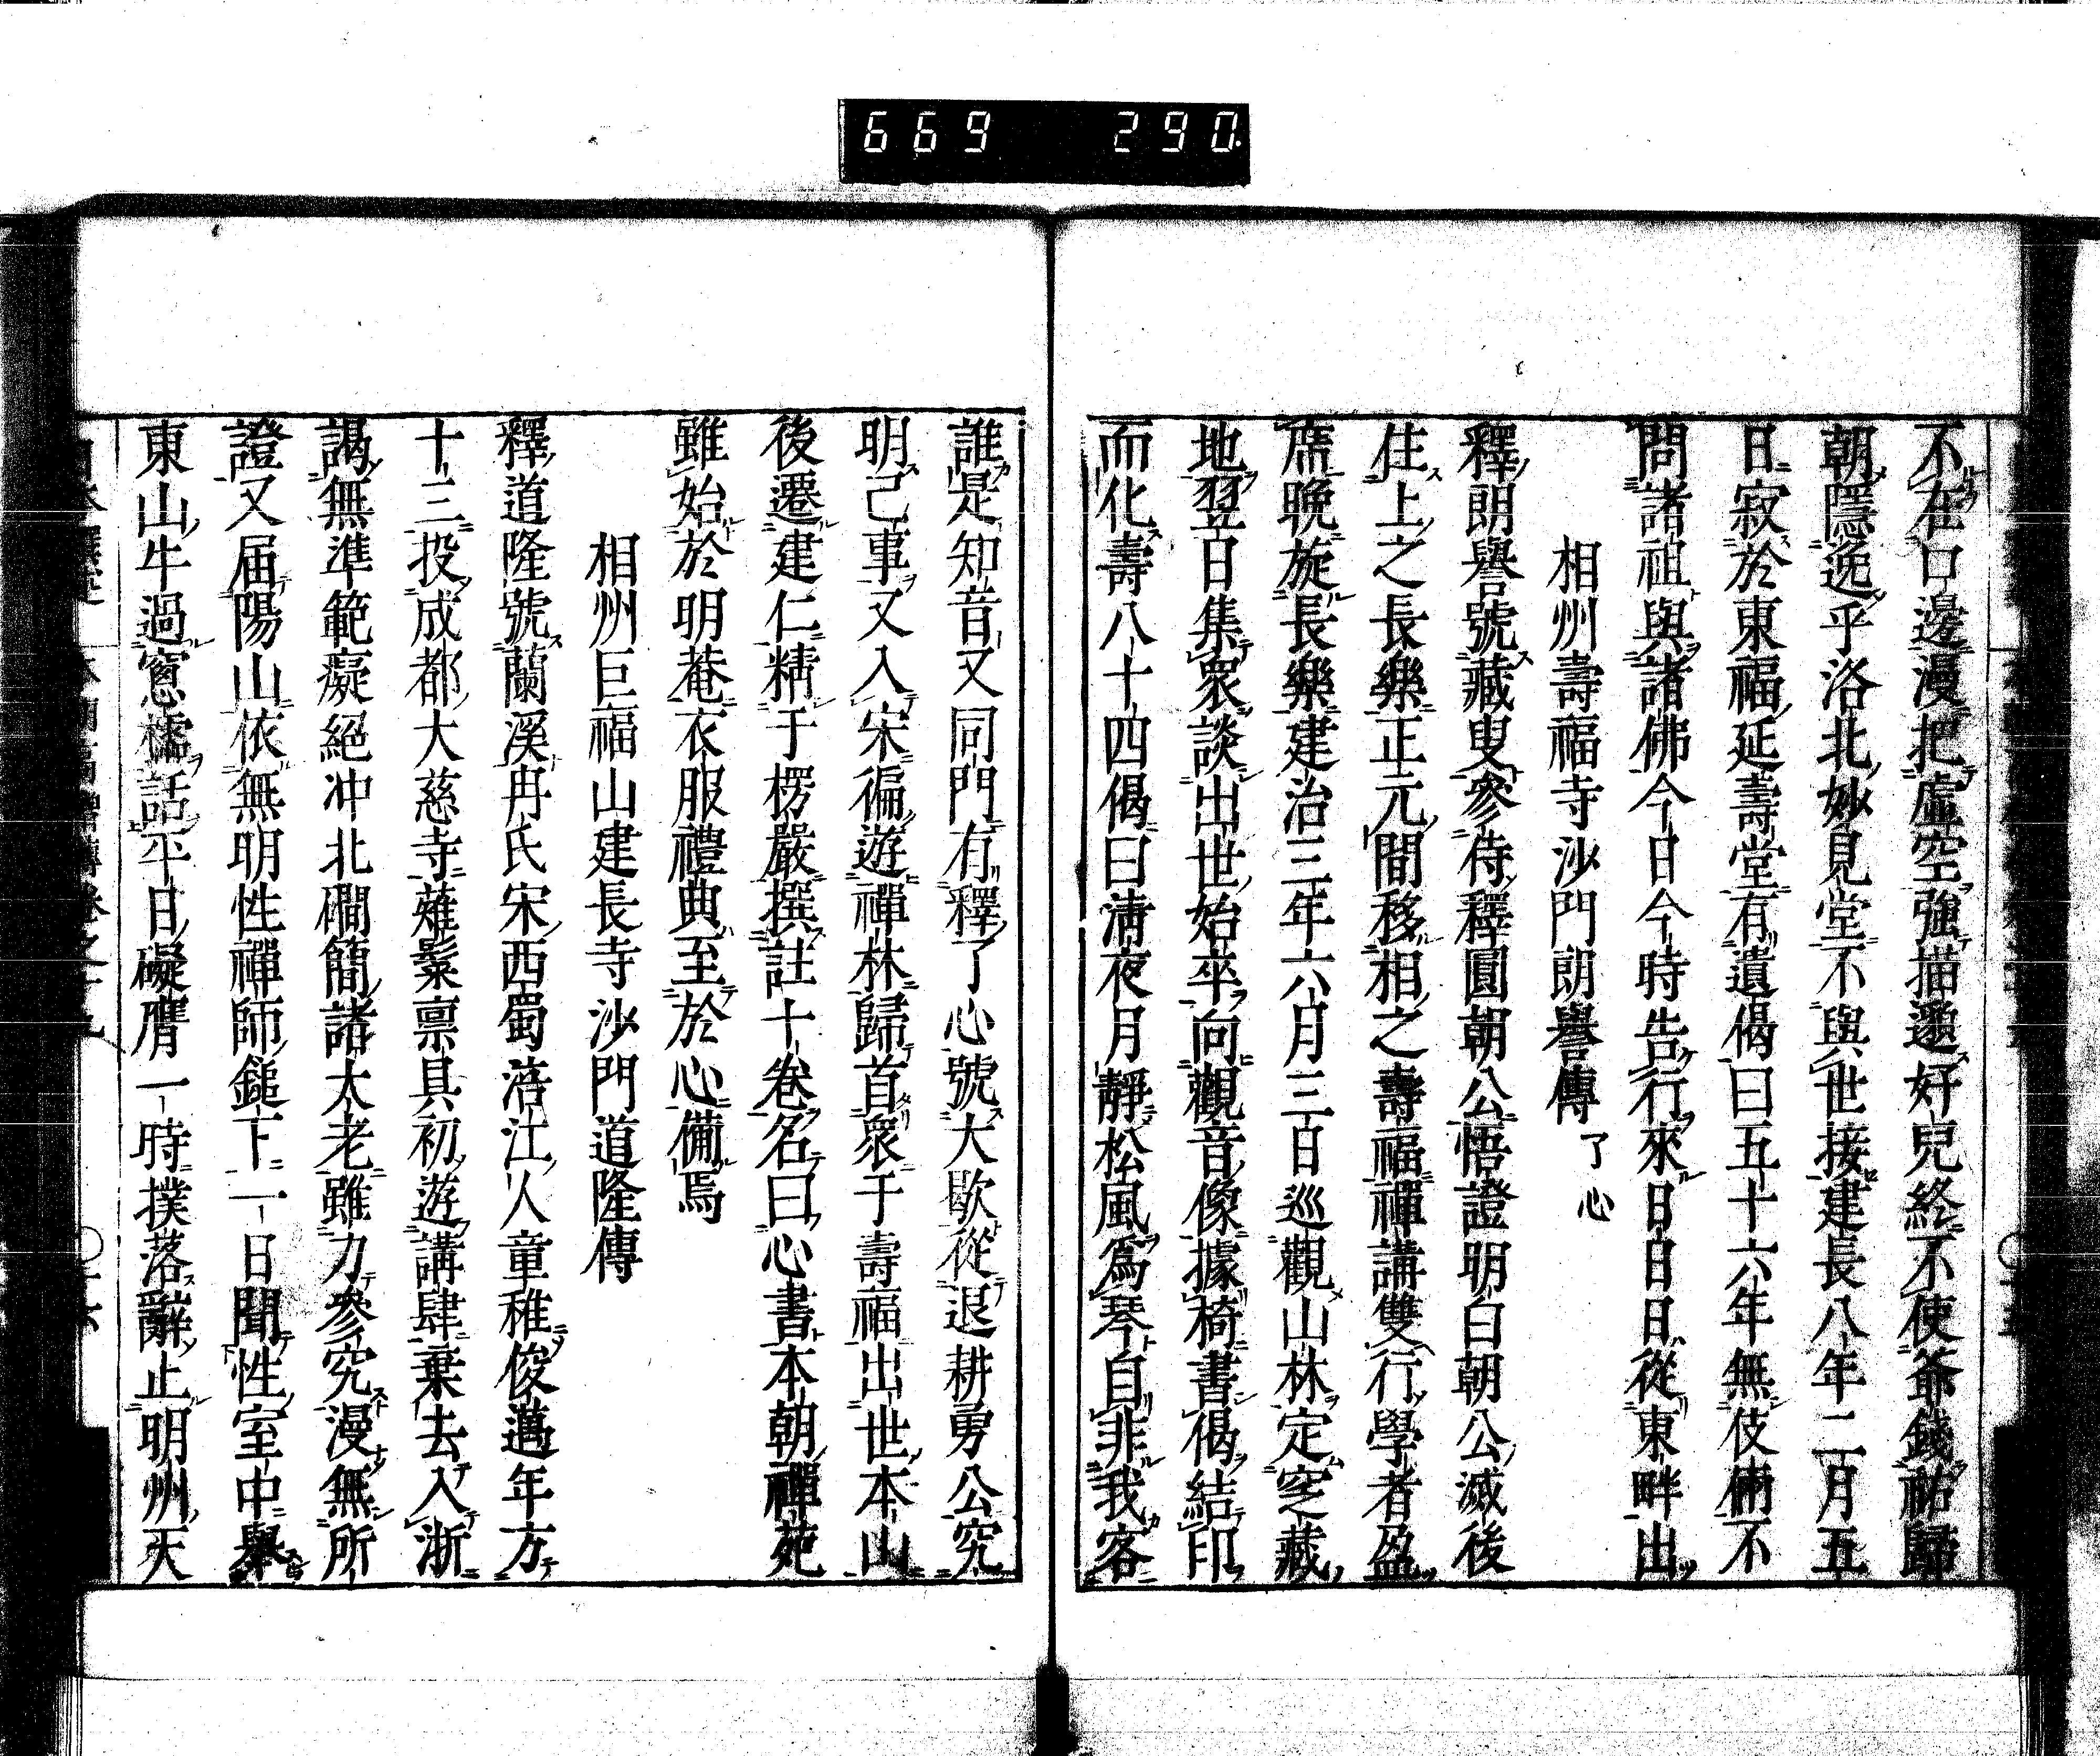 669 290
不在口邊漫把虛空強描邈好兒終不使爺錢祐歸
朝隱逸乎洛北妙見堂不與世接建長八年二月五
日寂於東福延壽堂有遺偈曰五十六年無伎倆不
問諸祖與諸佛今日今時告行來日日日從東畔出
相州壽福寺沙門朗譽傳 了心
釋朗譽號藏叟參侍釋圓朝公悟證明白朝公滅後
住上之長樂正元間移相之壽福禪講雙行學者盈
席晚旋長樂建治三年六月三日巡觀山林定窆藏
地翌日集衆談出世始卒向觀音像據椅書偈結印
而化壽八十四偈曰淸夜月靜松風爲琴自非我客
誰是知音又同門有釋了心號大歇從退耕勇公究
明己事又入宋徧遊禪林歸首衆于壽福出世本山
後遷建仁精于楞嚴撰註十卷名曰心書本朝禪苑
雖始於明菴衣服禮典至於心備焉
相州巨福山建長寺沙門道隆傳
釋道隆號蘭溪冉氏宋西蜀涪江人童稚俊邁年方
十三投成都大慈寺薙髮稟具初遊講肆棄去入浙
謁無準範癡絕冲北磵簡諸大老雖力參究漫無所
證又届陽山依無明性禪師鎚下一日聞性室中舉
東山牛過窻櫺話平日礙膺一時撲落辭止明州天